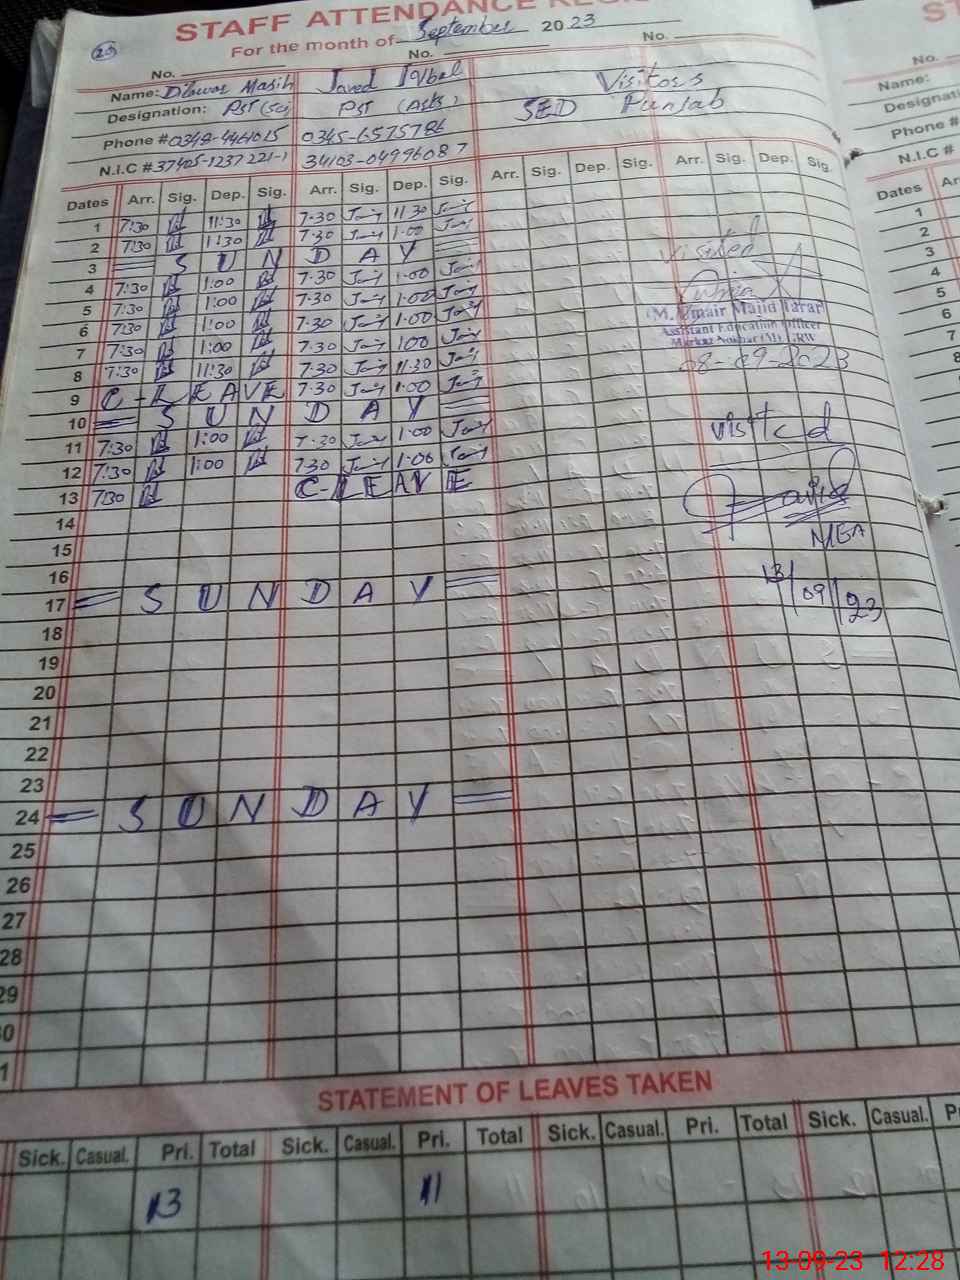 STAFF ATTENDANCE REGIS
(25) For the month of September 2023
No. No. No.
Name: Dilawar Masih Javed Iqbal Visitors
Designation: PST (Sci) PST (Arts) SED Punjab
Phone # 0348-4461015 0345-6575786
N.I.C # 37405-1237221-1 34103-0499608 7
Dates Arr. Sig. Dep. Sig. Arr. Sig. Dep. Sig. Arr. Sig. Dep. Sig. Arr. Sig. Dep. Sig.
1 7:30 11:30 7-30 11:30
2 7:30 1:30 7:30 1:00
3 S U N D A Y
4 7:30 1:00 7-30 1:00
5 7:30 1:00 7:30 1:00
6 7:30 1:00 7:30 1:00
7 7:30 1:00 7:30 1:00
8 7:30 11:30 7:30 11:30
9 C-LEAVE 7:30 1:00
10 S U N D A Y
11 7:30 1:00 7-30 1-00
12 7:30 1:00 7:30 1:00
13 7:30 C-LEAVE
14
15
16
17 S U N D A Y
18
19
20
21
22
23
24 S U N D A Y
25
26
27
28
29
30
31
Visited
M. Umair Majid Tarar
Assistant Education Officer
08-09-2023
visited
MEA
13/09/23
STATEMENT OF LEAVES TAKEN
Sick. Casual. Pri. Total Sick. Casual. Pri. Total Sick. Casual. Pri. Total Sick. Casual. P
13 11
ST
No.
Name:
Designati
Phone #
N.I.C #
Dates Ar
1
2
3
4
5
6
7
8
13-09-23 12:28